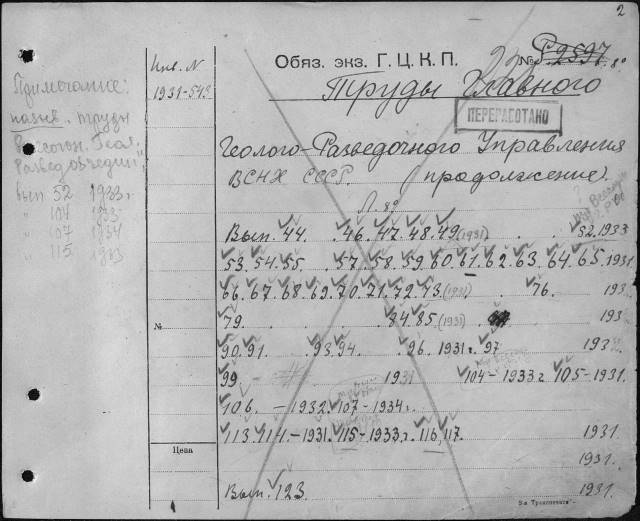 2
Инв. N
1931-543
Обяз. экз. Г. Ц. К. П.
№ Р 2597 8°
Труды Главного
ПЕРЕРАБОТАНО
Геолого-Разведочного Управления
ВСНХ СССР. (продолжение).
Л. 8°
Вып. 44. 46. 47. 48. 49 (1931) 52. 1933
53. 54. 55. 57. 58. 59. 60. 61. 62. 63. 64. 65. 1931
66. 67. 68. 69. 70. 71. 72. 73 (1931) 76. 193
79. 84. 85. (1931) 193
90. 91. 93. 94. 96. 1931 г. 97 193
99 1931 104 - 1933 г 105 - 1931.
106. - 1932. 107 - 1934.
113. 114. - 1931. 115 - 1933 г. 116, 117. 1931.
1931.
Вып. 123. 1931.
№
Цена
Примечание:
назыв. труды
Всесоюзн. Геол.
Разведоч.
вып 52 1933 г.
" 104 1933
" 107 1934
" 115 1933